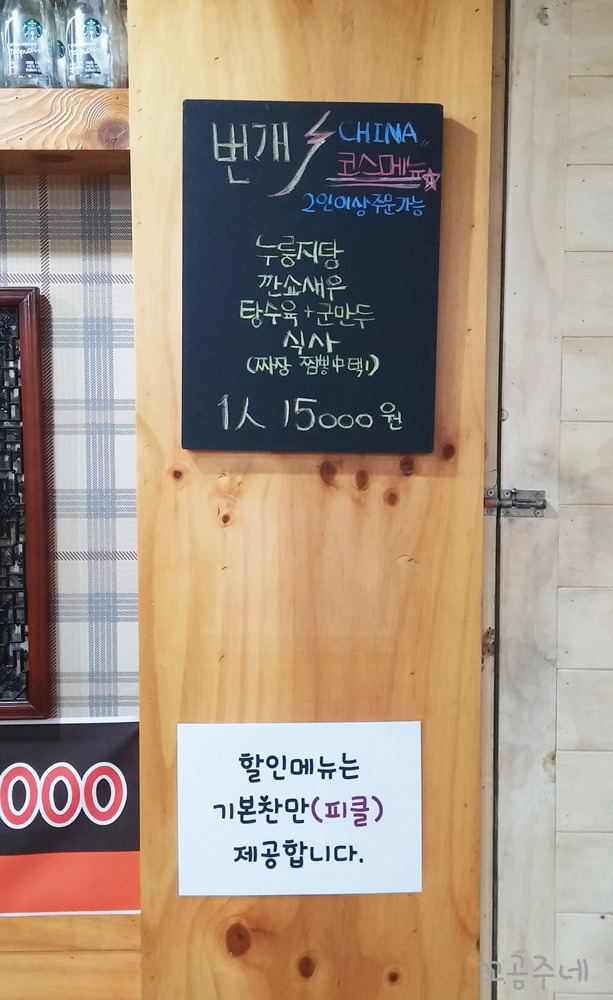 번개 CHINA
코스메뉴
2인이상주문가능
누룽지탕
깐쇼새우
탕수육+군만두
식사
(짜장 짬뽕中택1)
1人 15000원
000
할인메뉴는
기본찬만(피클)
제공합니다.
꼬곰주네